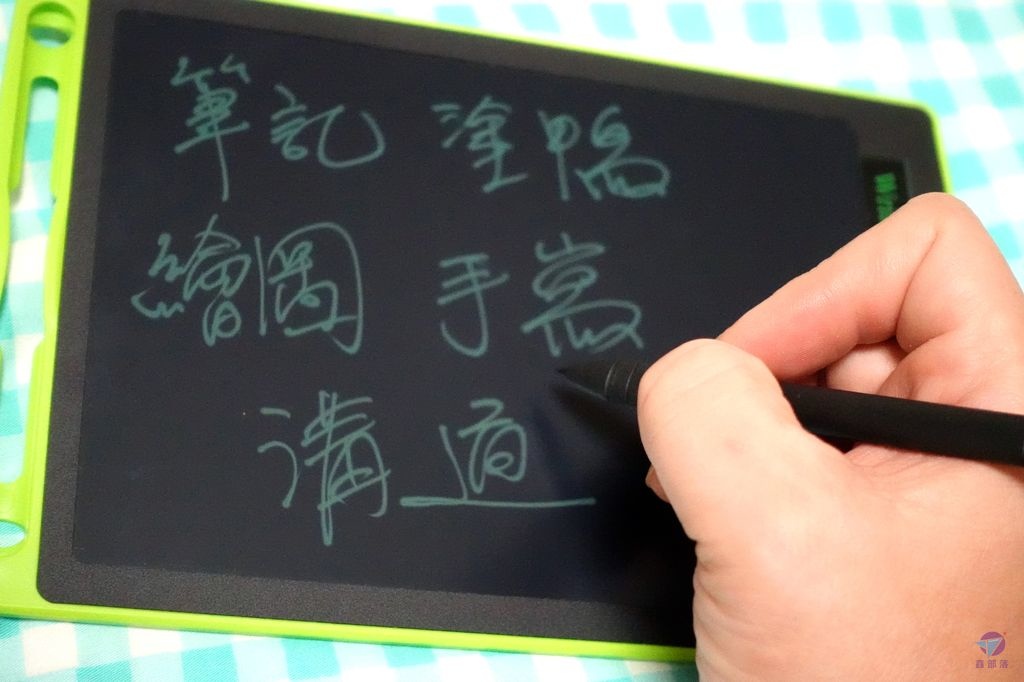 筆記 塗鴨
繪圖 手
溝通
鑫部落